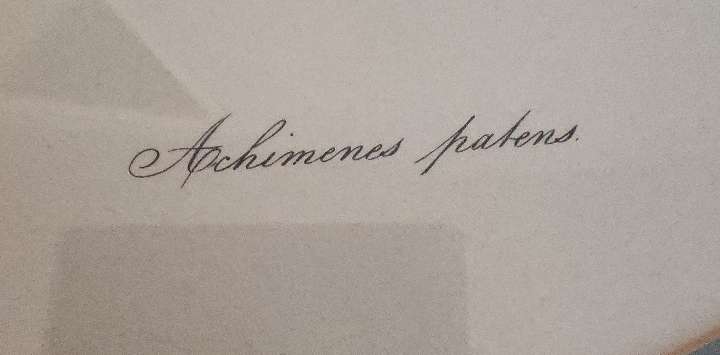 Achimenes patens.